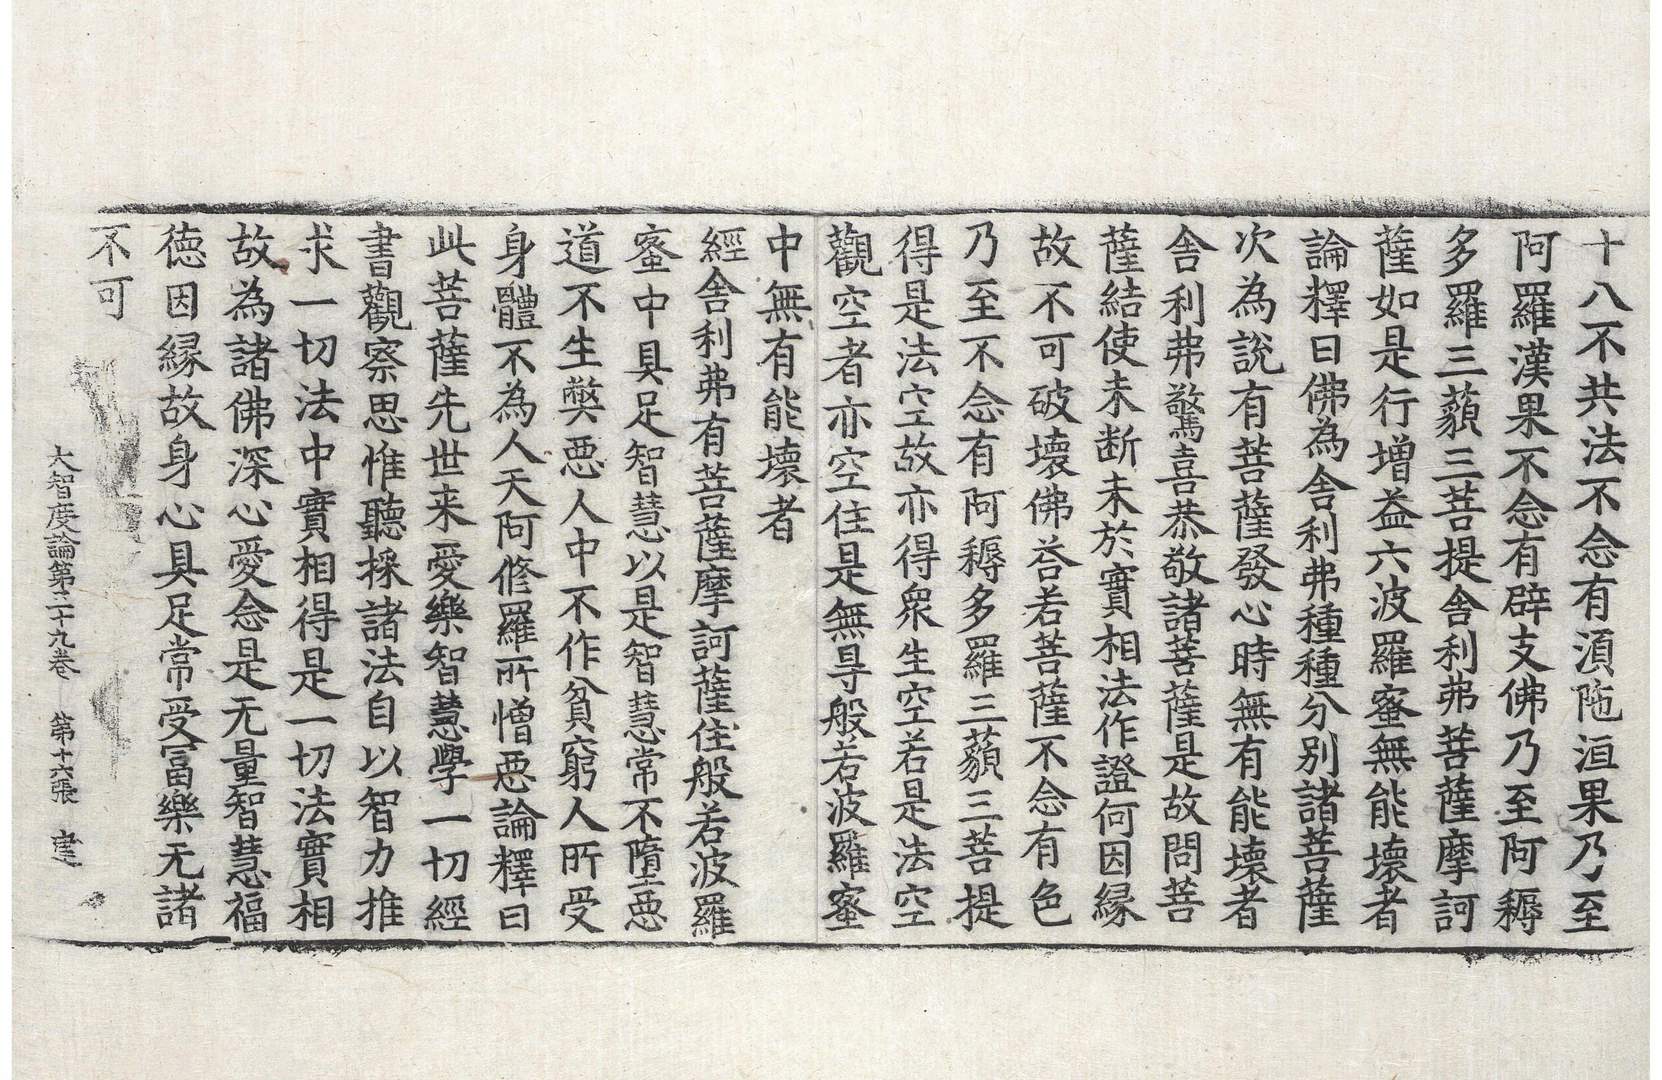 十八不共法不念有湏陁洹果乃至
阿羅漢果不念有辟支佛乃至阿耨
多羅三藐三菩提舍利弗菩薩摩訶
薩如是行增益六波羅蜜無能壞者
論釋曰佛為舍利弗種種分別諸菩薩
次為說有菩薩發心時無有能壞者
舍利弗驚喜恭敬諸菩薩是故問菩
薩結使未斷未於實相法作證何因緣
故不可破壞佛荅若菩薩不念有色
乃至不念有阿耨多羅三藐三菩提
得是法空故亦得衆生空若是法空
觀空者亦空住是無㝵般若波羅蜜
中無有能壞者
經舍利弗有菩薩摩訶薩住般若波羅
蜜中具足智慧以是智慧常不墮惡
道不生弊惡人中不作貧窮人所受
身體不為人天阿修羅所憎惡論釋曰
此菩薩先世来愛樂智慧學一切經
書觀察思惟聽採諸法自以智力推
求一切法中實相得是一切法實相
故為諸佛深心愛念是无量智慧福
德因緣故身心具足常受冨樂无諸
不可
大智度論第三十九卷 第十六張 建